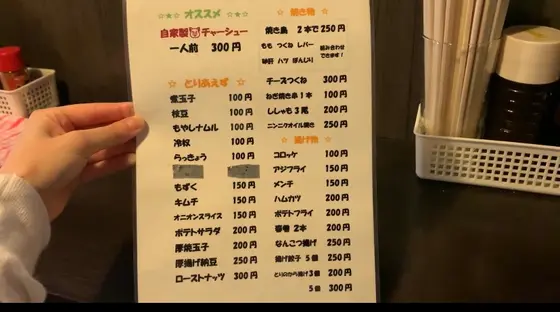 ☆★☆ オススメ ☆★☆
自家製チャーシュー
一人前 300円
☆ とりあえず ☆
煮玉子 100円
枝豆 100円
もやしナムル 100円
冷奴 100円
らっきょう 100円
もずく 150円
キムチ 150円
オニオンスライス 150円
ポテトサラダ 200円
厚焼玉子 200円
厚揚げ納豆 250円
ローストナッツ 300円
☆ 焼き物 ☆
焼き鳥 2本で250円
もも つくね レバー
砂肝 ハツ ぼんじり
組み合わせ
できます!
チーズつくね 300円
ねぎ焼き串1本 100円
ししゃも3尾 200円
ニンニクオイル焼き 250円
☆ 揚げ物 ☆
コロッケ 100円
アジフライ 150円
メンチ 150円
ハムカツ 200円
ポテトフライ 200円
春巻 2本 200円
なんこつ揚げ 250円
揚げ餃子 5個 250円
とりのから揚げ3個 200円
5個 300円